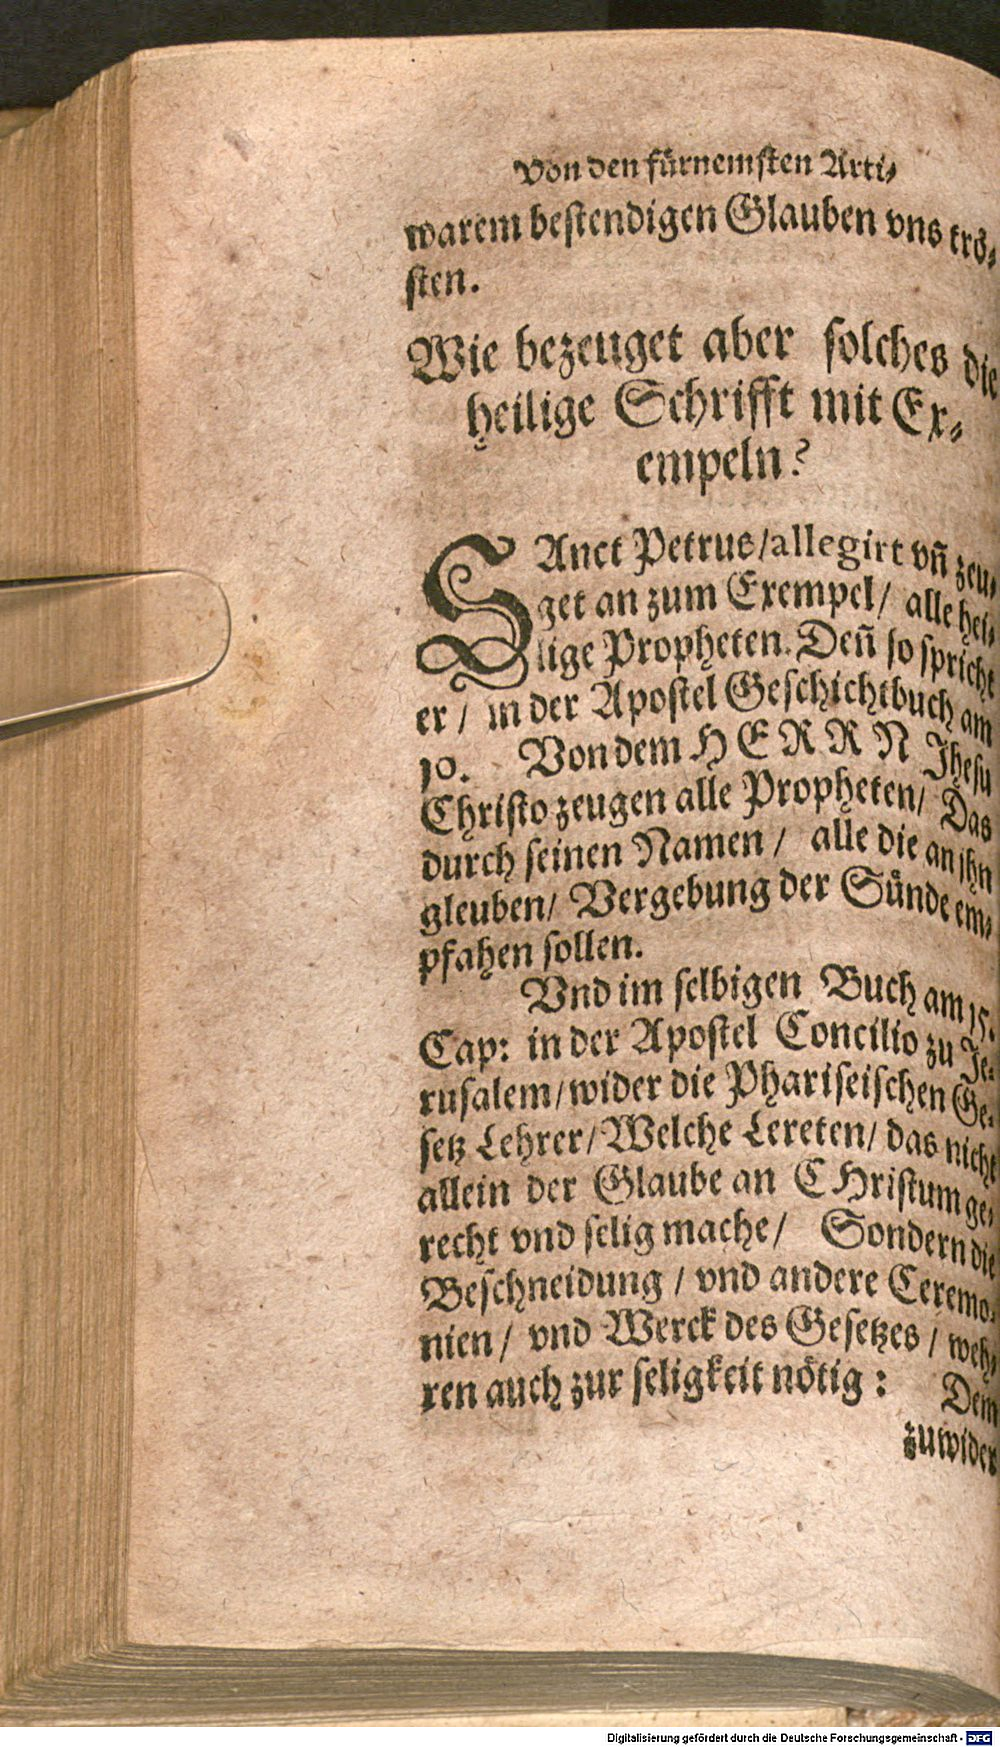 Von den fürnemsten Arti⸗
warem bestendigen Glauben vns trö⸗
sten.
Wie bezeuget aber solches die
heilige Schrifft mit Ex⸗
empeln?
SAnct Petrus/allegirt vñ zeu⸗
get an zum Exempel/ alle hei⸗
lige Propheten. Deñ so spricht
er/ in der Apostel Geschichtbuch am
10. Von dem HERRN Jhesu
Christo zeugen alle Propheten/ Das
durch seinen Namen/ alle die an jhn
gleuben/ Vergebung der Sünde em⸗
pfahen sollen.
Vnd im selbigen Buch am 15.
Cap: in der Apostel Concilio zu Je⸗
rusalem/wider die Phariseischen Ge⸗
setz Lehrer/Welche Lereten/ das nicht
allein der Glaube an CHristum ge⸗
recht vnd selig mache/ Sondern die
Beschneidung/ vnd andere Ceremo⸗
nien/ vnd Werck des Gesetzes/ weh⸗
ren auch zur seligkeit nötig: Dem
zuwider
Digitalisierung gefördert durch die Deutsche Forschungsgemeinschaft - DFG